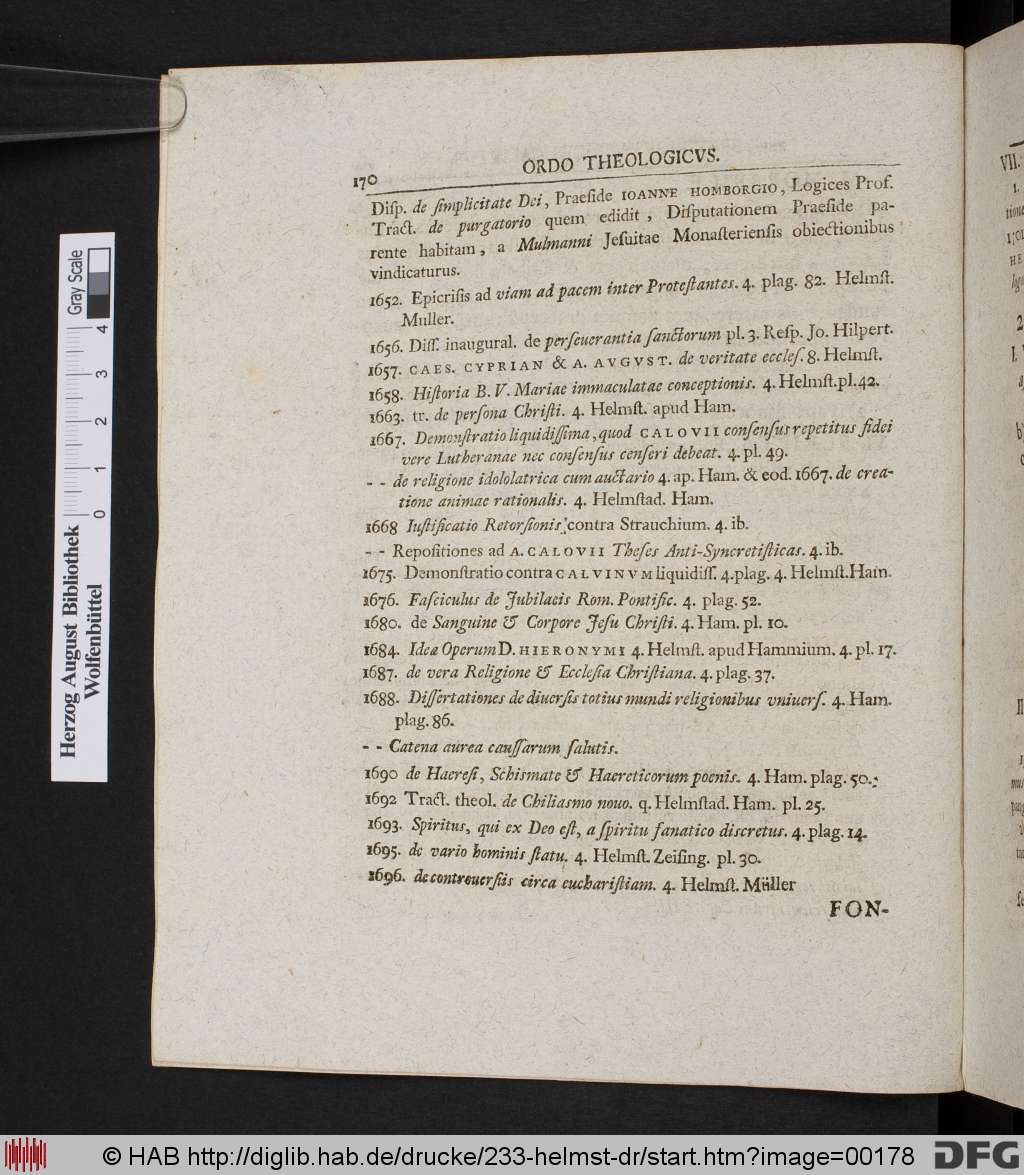 170 ORDO THEOLOGICVS.
Diſp. de ſimplicitate Dei, Praeſide IOANNE HOMBORGIO, Logices Prof.
Tract. de purgatorio quem edidit, Diſputationem Praeſide pa-
rente habitam, a Mulmanni Jeſuitae Monaſterienſis obiectionibus
vindicaturus.
1652. Epicriſis ad viam ad pacem inter Proteſtantes. 4. plag. 82. Helmſt.
Muller.
1656. Diſſ. inaugural. de perſeuerantia ſanctorum pl. 3. Reſp. Jo. Hilpert.
1657. CAES. CYPRIAN & A. AVGVST. de veritate eccleſ. 8. Helmſt.
1658. Hiſtoria B. V. Mariae immaculatae conceptionis. 4. Helmſt. pl. 42.
1663. tr. de perſona Chriſti. 4. Helmſt. apud Ham.
1667. Demonſtratio liquidiſſima, quod CALOVII conſenſus repetitus fidei
vere Lutheranae nec conſenſus cenſeri debeat. 4. pl. 49.
- - de religione idololatrica cum auctario 4. ap. Ham. & eod. 1667. de crea-
tione animae rationalis. 4. Helmſtad. Ham.
1668 Iuſtificatio Retorſionis contra Strauchium. 4. ib.
- - Repoſitiones ad A. CALOVII Theſes Anti-Syncretiſticas. 4. ib.
1675. Demonſtratio contra CALVINVM liquidiſſ. 4. plag. 4. Helmſt. Ham.
1676. Faſciculus de Jubilaeis Rom. Pontific. 4. plag. 52.
1680. de Sanguine & Corpore Jeſu Chriſti. 4. Ham. pl. 10.
1684. Idea Operum D. HIERONYMI 4. Helmſt. apud Hammium. 4. pl. 17.
1687. de vera Religione & Eccleſia Chriſtiana. 4. plag. 37.
1688. Diſſertationes de diuerſis totius mundi religionibus vniuerſ. 4. Ham.
plag. 86.
- - Catena aurea cauſſarum ſalutis.
1690 de Haereſi, Schismate & Haereticorum poenis. 4. Ham. plag. 50.
1692 Tract. theol. de Chiliasmo nouo. q. Helmſtad. Ham. pl. 25.
1693. Spiritus, qui ex Deo eſt, a ſpiritu fanatico discretus. 4. plag. 14.
1695. de vario hominis ſtatu. 4. Helmſt. Zeiſing. pl. 30.
1696. de controuerſiis circa euchariſtiam. 4. Helmſt. Müller
FON-
Herzog August Bibliothek
Wolfenbüttel
Gray Scale
0 1 2 3 4
© HAB http://diglib.hab.de/drucke/233-helmst-dr/start.htm?image=00178
DFG